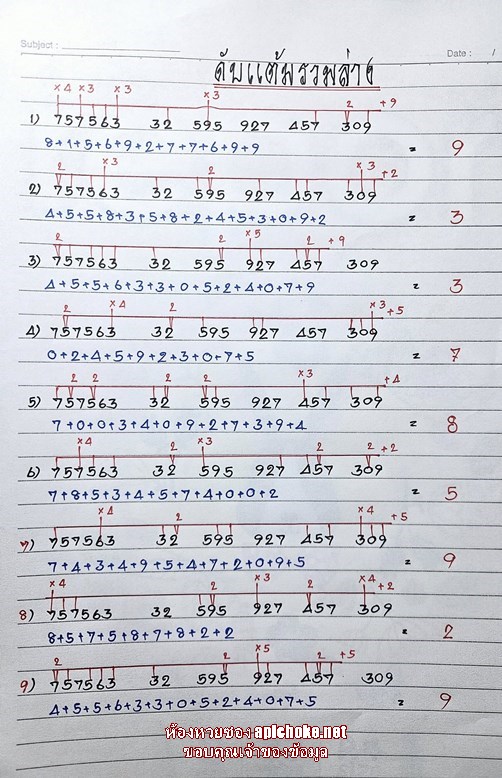 Subject :
Date : /
ดับแต้มรวมล่าง
×4 ×3 ×3 ×3 2 +9
1) 757563 32 595 927 457 309
8+1+5+6+9+2+7+7+6+9+9 = 9
2 ×3 2 ×3 +2
2) 757563 32 595 927 457 309
4+5+5+8+3+5+8+2+4+5+3+0+9+2 = 3
2 2 ×5 2 +9
3) 757563 32 595 927 457 309
4+5+5+6+3+3+0+5+2+4+0+7+9 = 3
2 ×4 2 ×3 +5
4) 757563 32 595 927 457 309
0+2+4+5+9+2+3+0+7+5 = 7
2 2 2 2 ×3 +4
5) 757563 32 595 927 457 309
7+0+0+3+4+0+9+2+7+3+9+4 = 8
×4 2 ×3 2 2 +2
6) 757563 32 595 927 457 309
7+8+5+3+4+5+7+4+0+0+2 = 5
×4 2 ×4 +5
7) 757563 32 595 927 457 309
7+4+3+4+9+5+4+7+2+0+9+5 = 9
×4 2 ×3 2 ×4 +2
8) 757563 32 595 927 457 309
8+5+7+5+8+7+8+2+2 = 2
2 2 ×5 2 +5
9) 757563 32 595 927 457 309
4+5+5+6+3+3+0+5+2+4+0+7+5 = 9
ห้องหวยซอง apichoke.net
ขอบคุณเจ้าของข้อมูล